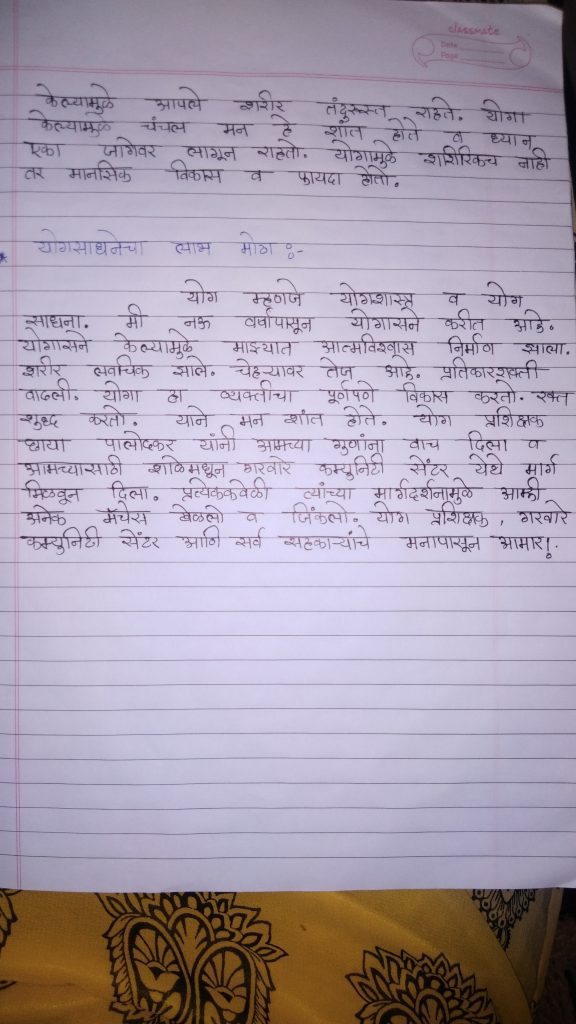 classmate
Date
Page
केल्यामुळे आपले शरीर तंदुरूस्त राहते. योगा
केल्यामुळे चंचल मन हे शांत होते व ध्यान
एका जागेवर लागून राहतो. योगामुळे शारिरिकच नाही
तर मानसिक विकास व फायदा होतो.
योगसाधनेचा लाभ मोग :-
योग म्हणजे योगशास्त्र व योग
साधना. मी नऊ वर्षापासून योगासने करीत आहे.
योगासने केल्यामुळे माझ्यात आत्मविश्वास निर्माण झाला.
शरीर लवचिक झाले. चेहऱ्यावर तेज आहे. प्रतिकारशक्ती
वाढली. योगा हा व्यक्तीचा पूर्णपणे विकास करतो. रक्त
शुध्द करतो. याने मन शांत होते. योग प्रशिक्षक
छाया पालोदकर यांनी आमच्या गुणांना वाच दिला व
आमच्यासाठी शाळेमधून गरवारे कम्युनिटी सेंटर येथे मार्ग
मिळवून दिला. प्रत्येकवेळी त्यांच्या मार्गदर्शनामुळे आम्ही
अनेक मॅचेस खेळलो व जिंकलो. योग प्रशिक्षक, गरवारे
कम्युनिटी सेंटर आणि सर्व सहकाऱ्यांचे मनापासून आभार!